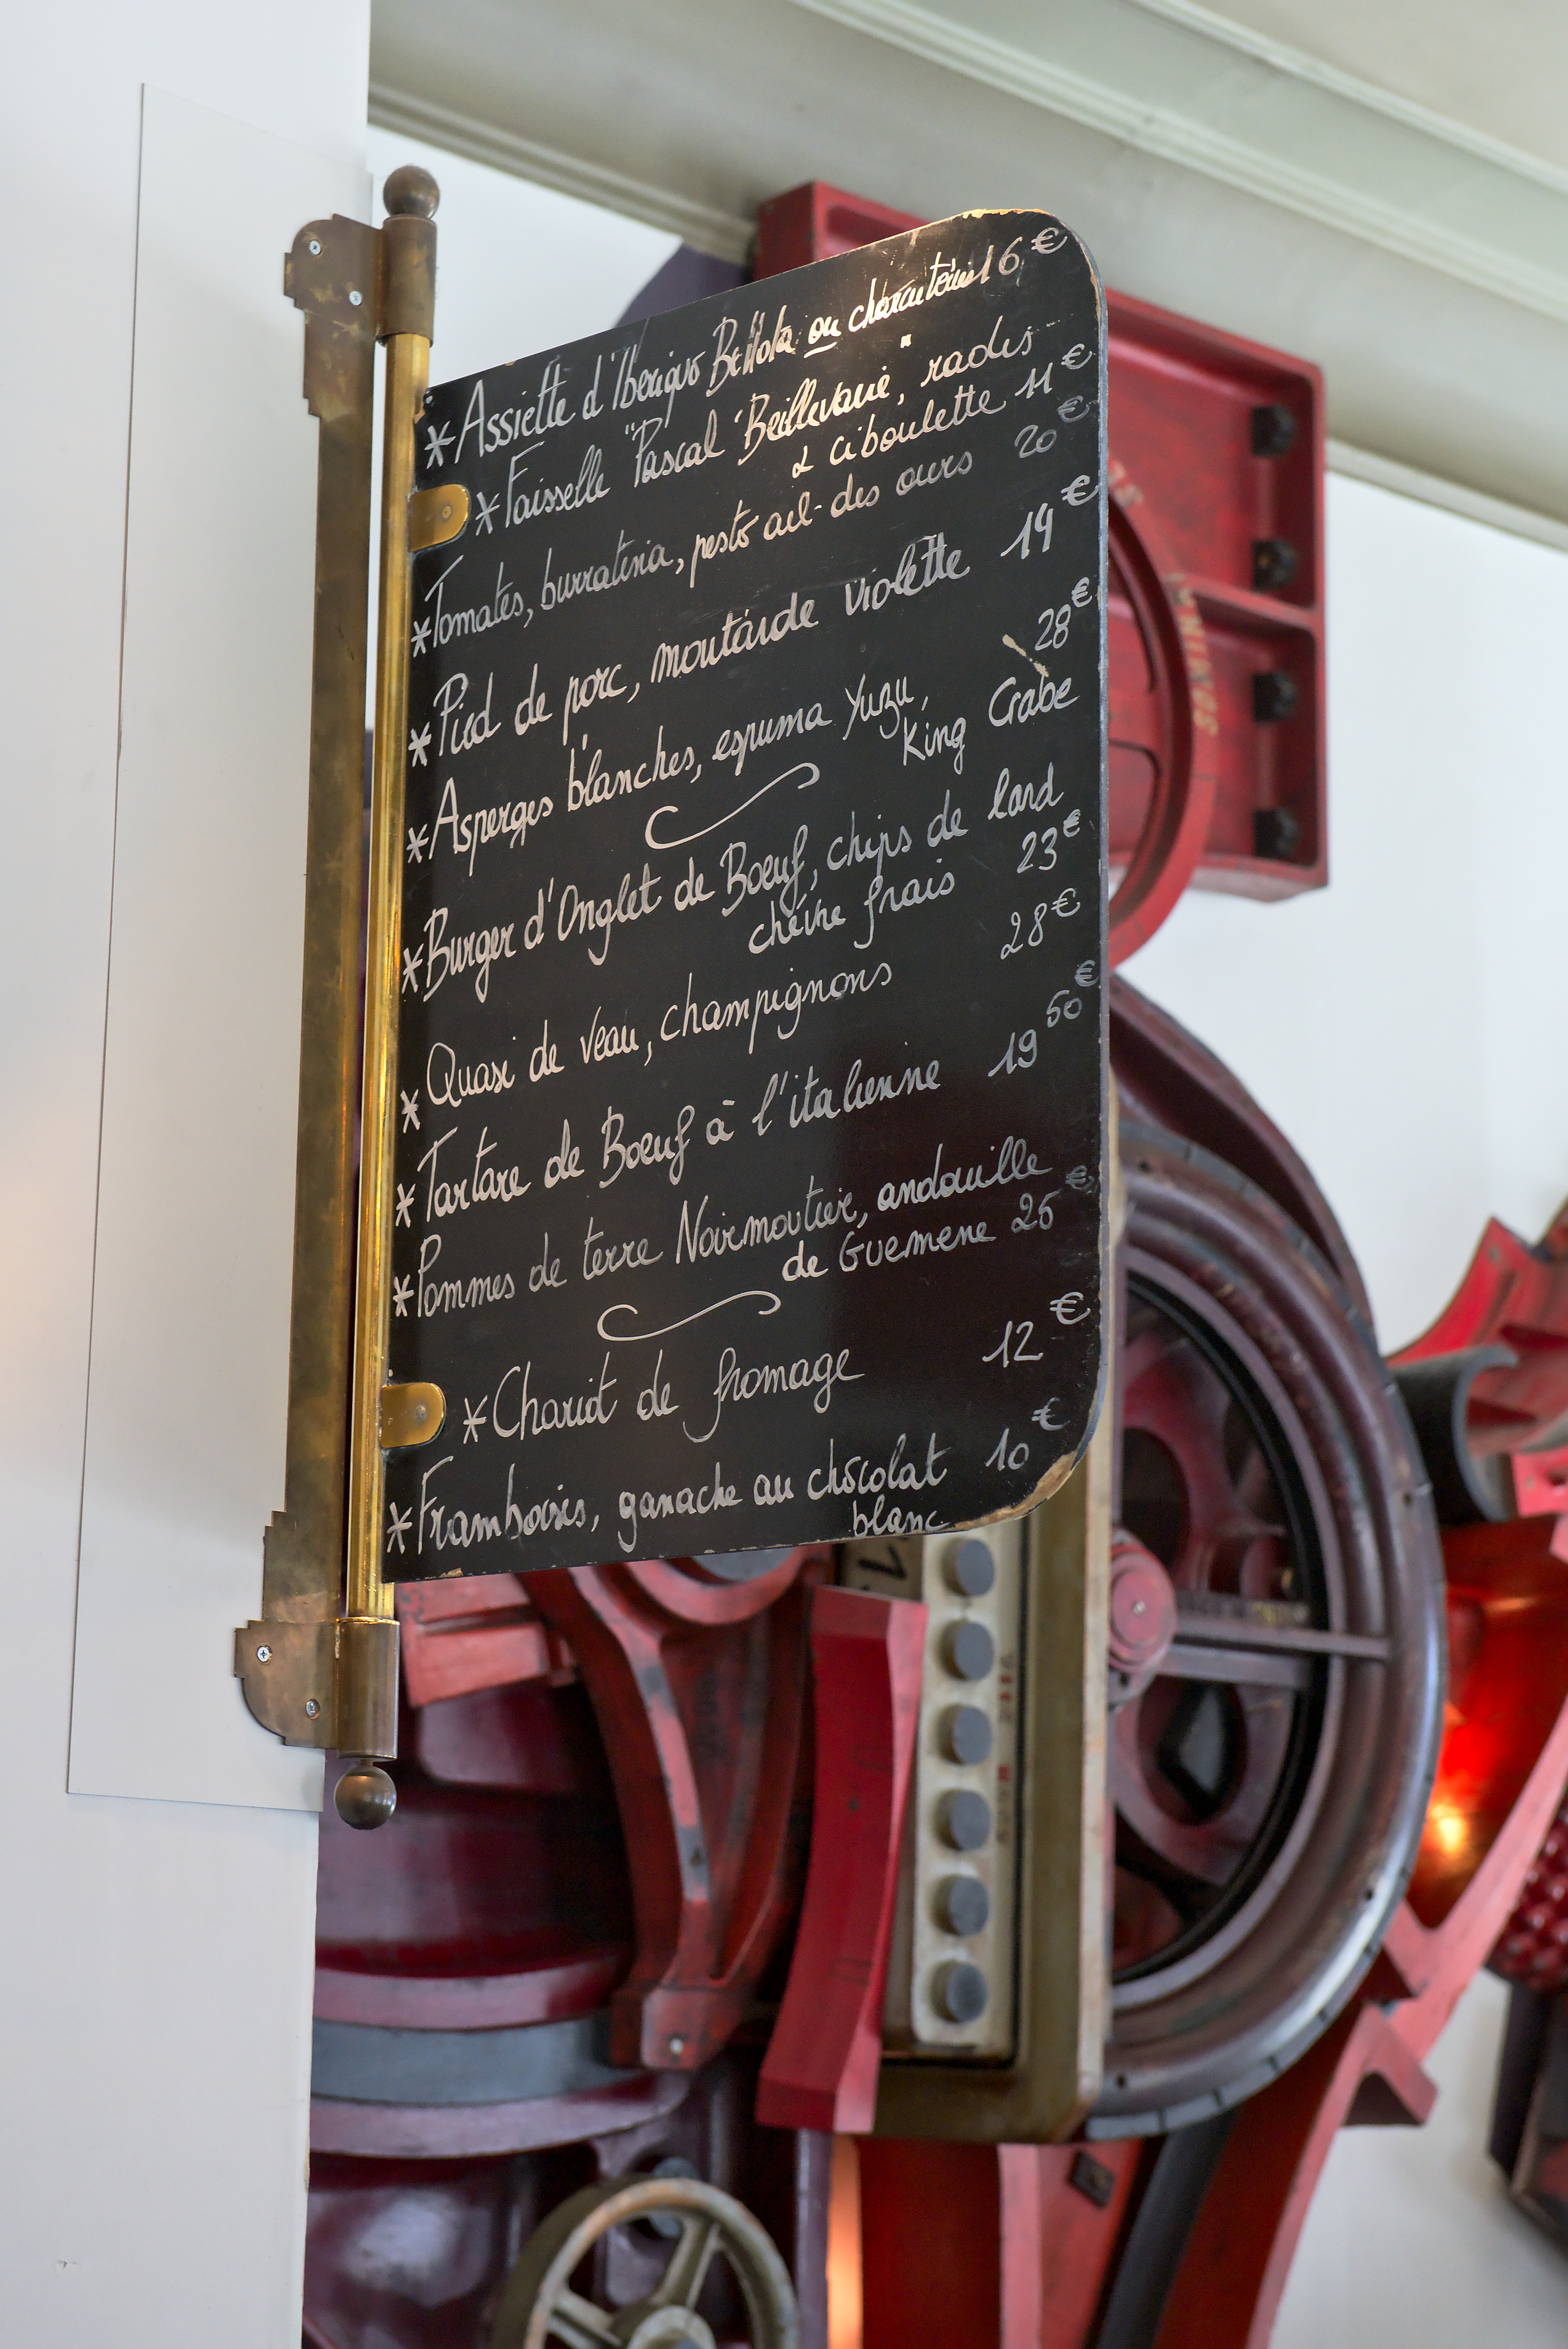 * Assiette d'Iberique Bellota ou charcuterie 16 €
* Faisselle "Pascal Beillevaire", radis
& ciboulette 11 €
* Tomates, burratina, pesto ail-des ours 20 €
* Pied de porc, moutarde violette 14 €
* Asperges blanches, espuma Yuzu, 28 €
King Crabe
* Burger d'Onglet de Boeuf, chips de lard
chèvre frais 23 €
* Quasi de veau, champignons 28 €
* Tartare de Boeuf à l'italienne 19 50 €
* Pommes de terre Noirmoutier, andouille
de Guemene 25 €
* Chariot de fromage 12 €
* Framboises, ganache au chocolat 10 €
blanc